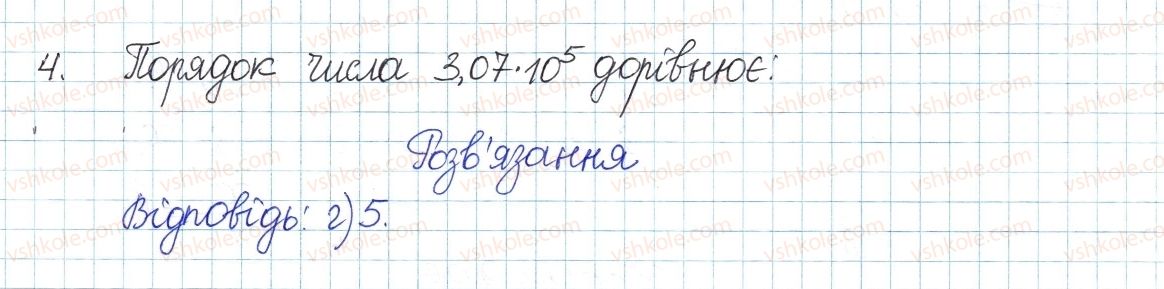 4. Порядок числа 3,07·10⁵ дорівнює:
Розв'язання
Відповідь: г) 5.